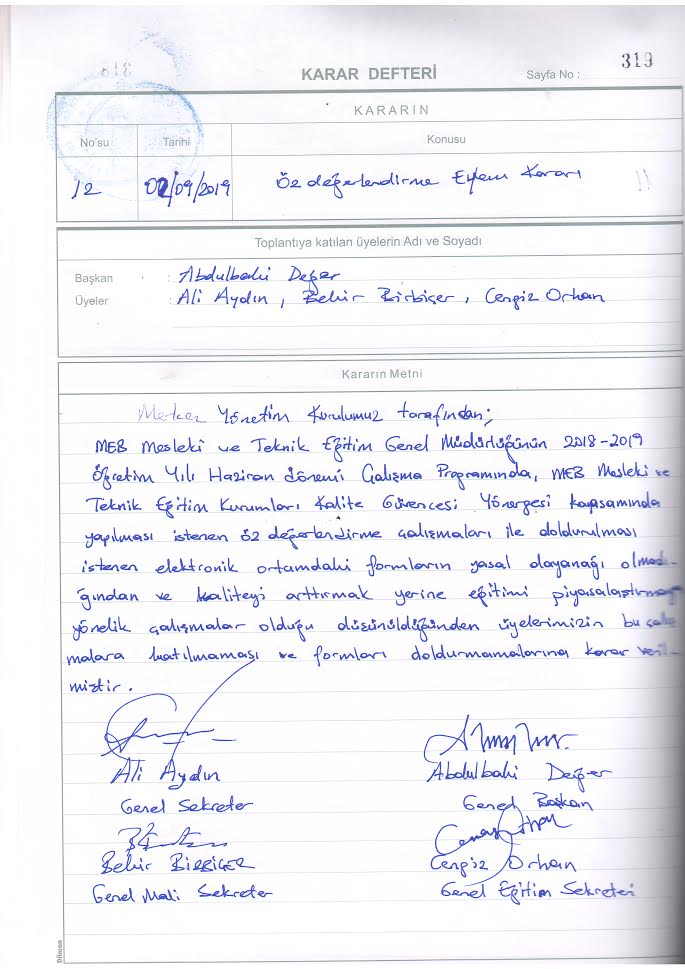 KARAR DEFTERİ
Sayfa No :
319
KARARIN
No'su
Tarihi
Konusu
12
02/09/2019
Öz değerlendirme Eylem Kararı
Toplantıya katılan üyelerin Adı ve Soyadı
Başkan : Abdulbaki Değer
Üyeler : Ali Aydın, Bekir Birbiçer, Cengiz Orhan
Kararın Metni
Merkez Yönetim Kurulumuz tarafından;
MEB Mesleki ve Teknik Eğitim Genel Müdürlüğünün 2018-2019
Öğretim Yılı Haziran dönemi Çalışma Programında, MEB Mesleki ve
Teknik Eğitim Kurumları Kalite Güvencesi Yönergesi kapsamında
yapılması istenen öz değerlendirme çalışmaları ile doldurulması
istenen elektronik ortamdaki formların yasal dayanağı olmad-
ığından ve kaliteyi arttırmak yerine eğitimi piyasalaştırmaya
yönelik çalışmalar olduğu düşünüldüğünden üyelerimizin bu çalış
malara katılmaması ve formları doldurmamalarına karar veril-
miştir.
Ali Aydın
Genel Sekreter
Abdulbaki Değer
Genel Başkan
Bekir BİRBİÇER
Genel Mali Sekreter
Cengiz Orhan
Genel Eğitim Sekreteri
Dilman